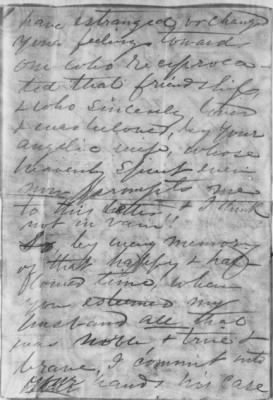 have estranged, or changed
your feelings toward
one who reciproca-
ted that friendship,
& who sincerely loved
& was beloved, by your
angelic wife, whose
heavenly Spirit even
now prompts me
to this letter & I think
not in vain,
So, by every memory
of that happy & half
flowed time, when
you esteemed my
husband all that
was noble, & true &
brave, I commit into
your hands his case